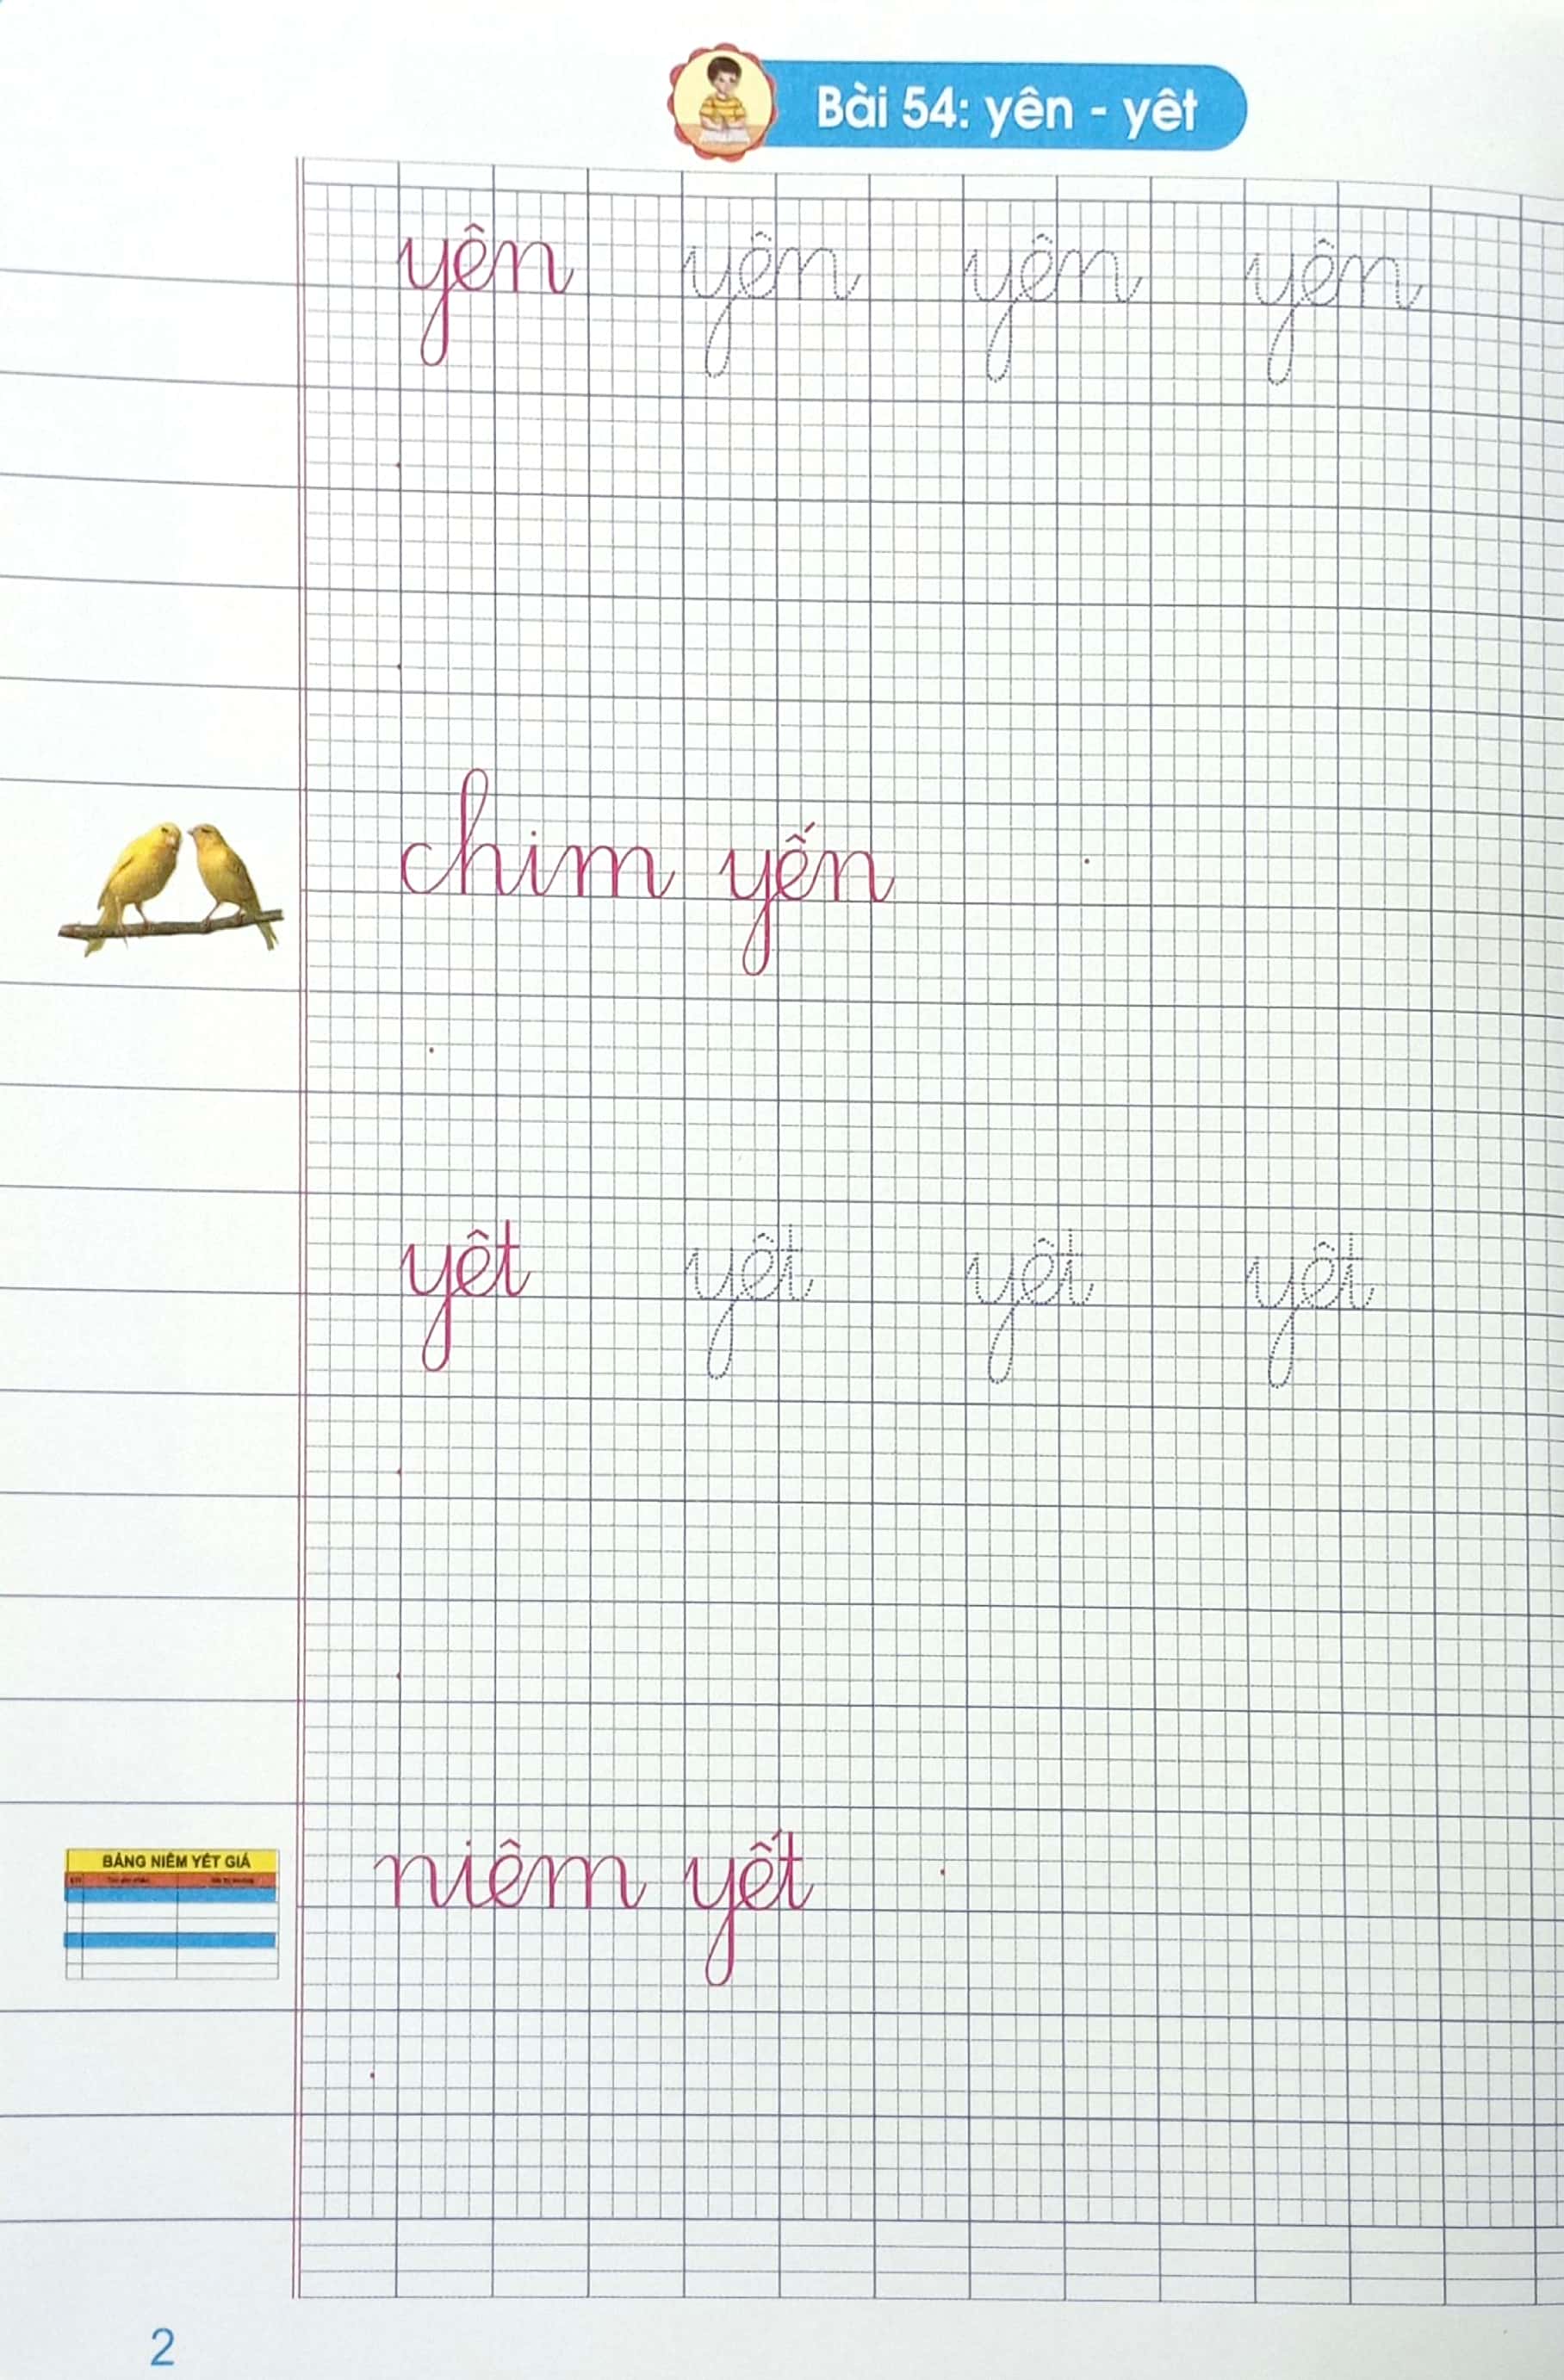 Bài 54: yên - yêt
yên yên yên yên
chim yến
yêt yêt yêt yêt
BẢNG NIÊM YẾT GIÁ
niêm yết
2